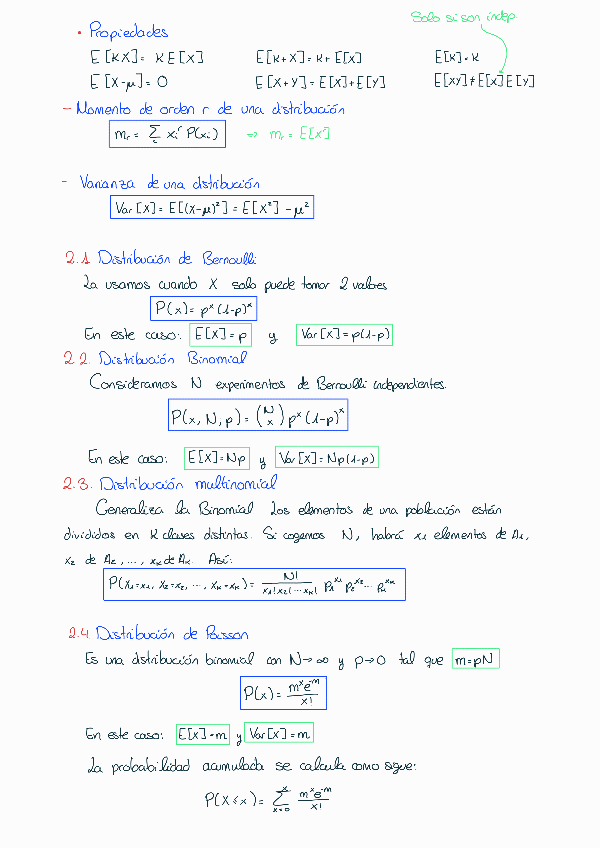 Solo si son indep.
• Propiedades
E[KX] = K E[X] E[K+X] = K+E[X] E[K] = K
E[X-μ] = 0 E[X+Y] = E[X]+E[Y] E[XY] ≠ E[X]E[Y]
- Momento de orden r de una distribución
m_r = Σ_i x_i^r P(x_i) ⇒ m_1 = E[X]
- Varianza de una distribución
Var[X] = E[(X-μ)²] = E[X²] - μ²
2.1 Distribución de Bernoulli
La usamos cuando X solo puede tomar 2 valores
P(x) = p^x (1-p)^x
En este caso: E[X] = p y Var[X] = p(1-p)
2.2. Distribución Binomial
Consideramos N experimentos de Bernoulli independientes.
P(x, N, p) = (N x) p^x (1-p)^x
En este caso: E[X] = Np y Var[X] = Np(1-p)
2.3. Distribución multinomial
Generaliza la Binomial Los elementos de una población están
divididos en K clases distintas. Si cogemos N, habrá x₁ elementos de A₁,
x₂ de A₂, ..., x_K de A_K. Así:
P(X₁=x₁, X₂=x₂, ..., X_K=x_K) = N! / x₁!x₂!···x_K! p₁^x₁ p₂^x₂ ··· p_K^x_K
2.4 Distribución de Poisson
Es una distribución binomial con N→∞ y p→0 tal que m=pN
P(x) = m^x e^-m / x!
En este caso: E[X] = m y Var[X] = m
La probabilidad acumulada se calcula como sigue:
P(X≤x) = Σ_{x=0}^{x} m^x e^-m / x!